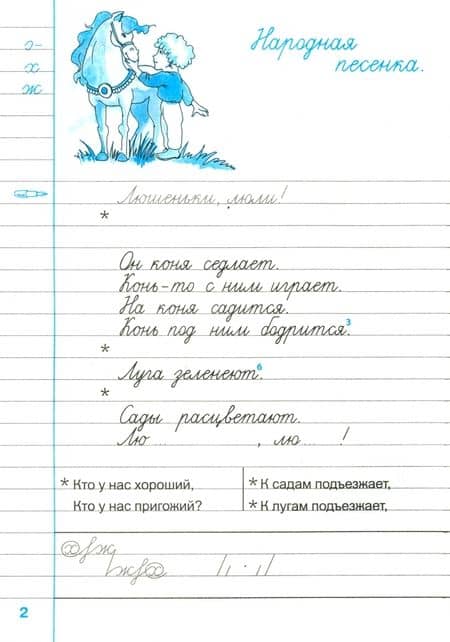 Народная
песенка.
э-
х
ж
Люшеньки, люли!
*
Он коня седлает.
Конь-то с ним играет.
На коня садится.
Конь под ним бодрится.³
*
Луга зеленеют.⁶
*
Сады расцветают.
Лю... , лю... !
* Кто у нас хороший,
Кто у нас пригожий?
* К садам подъезжает,
* К лугам подъезжает,
2